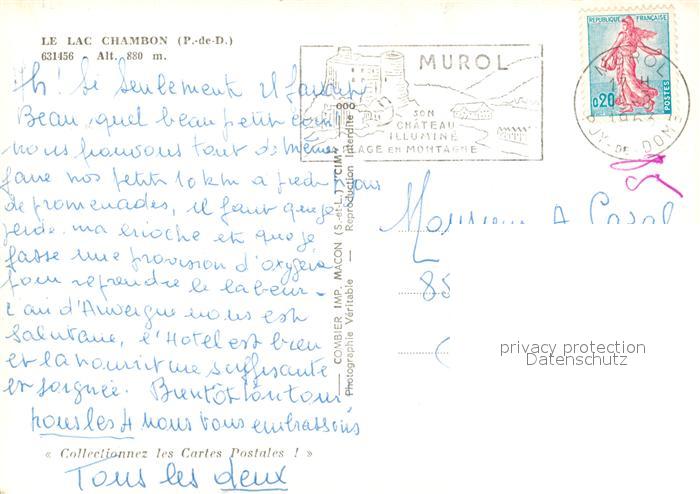 LE LAC CHAMBON (P.-de-D.)
631456 Alt. 880 m.
Ah! Si seulement il faisait
Beau, quel beau petit coin!
nous pouvons tout de même
faire nos petits 10 km à pied
de promenades, il faut que je
perde ma brioche et que je
fasse une provision d'oxygène
pour reprendre le labeur.
L'air d'Auvergne nous est
salutaire, l'Hôtel est bien
et la nourriture suffisante
et soignée. Bientôt
pour les 4 nous vous embrassons
« Collectionnez les Cartes Postales ! »
Tous les deux
COMBIER IMP. MACON (S.-et-L.) "CIM"
Photographie Véritable — Reproduction Interdite
MUROL
SON
CHÂTEAU
ILLUMINÉ
AGE EN MONTAGNE
REPUBLIQUE FRANÇAISE
0,20
POSTES
MUROL
PUY-DE-DOME
Monsieur A Casal
85
privacy protection
Datenschutz